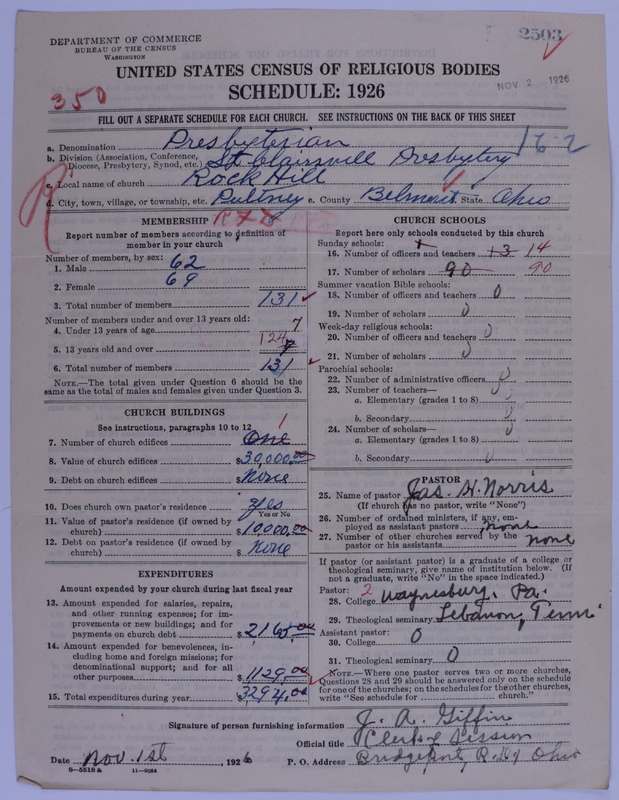 2503
DEPARTMENT OF COMMERCE
BUREAU OF THE CENSUS
WASHINGTON
UNITED STATES CENSUS OF RELIGIOUS BODIES
NOV 2 1926
350
SCHEDULE: 1926
FILL OUT A SEPARATE SCHEDULE FOR EACH CHURCH. SEE INSTRUCTIONS ON THE BACK OF THIS SHEET
16-2
a. Denomination Presbyterian
b. Division (Association, Conference, Diocese, Presbytery, Synod, etc.) St. Clairsvill Presbytery
R
c. Local name of church Rock Hill
d. City, town, village, or township, etc. Pultney e. County Belmont State Ohio
MEMBERSHIP
Report number of members according to definition of
member in your church
Number of members, by sex:
1. Male 62
2. Female 69
3. Total number of members 131
Number of members under and over 13 years old:
4. Under 13 years of age 7
5. 13 years old and over 124 7
6. Total number of members 131
NOTE.—The total given under Question 6 should be the
same as the total of males and females given under Question 3.
CHURCH BUILDINGS
See instructions, paragraphs 10 to 12
7. Number of church edifices One 1
8. Value of church edifices $30,000.00
9. Debt on church edifices $None
10. Does church own pastor's residence Yes
Yes or No
11. Value of pastor's residence (if owned by
church) $10000.00
12. Debt on pastor's residence (if owned by
church) $None
EXPENDITURES
Amount expended by your church during last fiscal year
13. Amount expended for salaries, repairs,
and other running expenses; for im-
provements or new buildings; and for
payments on church debt $2165.00
14. Amount expended for benevolences, in-
cluding home and foreign missions; for
denominational support; and for all
other purposes $1129.00
15. Total expenditures during year $3294.00
CHURCH SCHOOLS
Report here only schools conducted by this church
Sunday schools:
16. Number of officers and teachers 13 14
17. Number of scholars 90 90
Summer vacation Bible schools:
18. Number of officers and teachers 0
19. Number of scholars 0
Week-day religious schools:
20. Number of officers and teachers 0
21. Number of scholars 0
Parochial schools:
22. Number of administrative officers 0
23. Number of teachers—
a. Elementary (grades 1 to 8) 0
b. Secondary 0
24. Number of scholars—
a. Elementary (grades 1 to 8) 0
b. Secondary 0
PASTOR
25. Name of pastor Jas. H. Norris
(If church has no pastor, write "None")
26. Number of ordained ministers, if any, em-
ployed as assistant pastors none
27. Number of other churches served by the
pastor or his assistants none
If pastor (or assistant pastor) is a graduate of a college or
theological seminary, give name of institution below. (If
not a graduate, write "No" in the space indicated.)
Pastor: 2
28. College Waynesburg, Pa.
29. Theological seminary Lebanon, Tenn.
Assistant pastor:
30. College 0
31. Theological seminary 0
NOTE.—Where one pastor serves two or more churches,
Questions 28 and 29 should be answered only on the schedule
for one of the churches; on the schedules for the other churches,
write "See schedule for church."
Signature of person furnishing information J. A. Giffin
Official title Clerk of Session
Date Nov. 1st, 1926 P. O. Address Bridgeport, R.D.1 Ohio
8—5518 a 11—9084